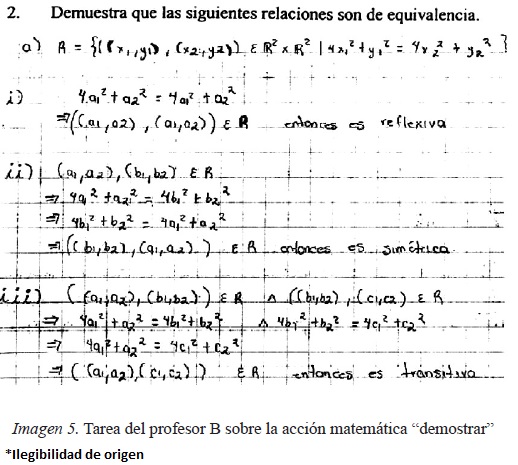 2. Demuestra que las siguientes relaciones son de equivalencia.
a) R = {((x₁, y₁), (x₂, y₂)) ∈ R² x R² | 4x₁² + y₁² = 4x₂² + y₂²}
i) 4a₁² + a₂² = 4a₁² + a₂²
⇒ ((a₁, a₂), (a₁, a₂)) ∈ R entonces es reflexiva
ii) (a₁, a₂), (b₁, b₂) ∈ R
⇒ 4a₁² + a₂² = 4b₁² + b₂²
⇒ 4b₁² + b₂² = 4a₁² + a₂²
⇒ ((b₁, b₂), (a₁, a₂)) ∈ R entonces es simétrica
iii) ((a₁, a₂), (b₁, b₂)) ∈ R ∧ ((b₁, b₂), (c₁, c₂) ∈ R
⇒ 4a₁² + a₂² = 4b₁² + b₂² ∧ 4b₁² + b₂² = 4c₁² + c₂²
⇒ 4a₁² + a₂² = 4c₁² + c₂²
⇒ ((a₁, a₂), (c₁, c₂)) ∈ R entonces es transitiva
Imagen 5. Tarea del profesor B sobre la acción matemática “demostrar”
*Ilegibilidad de origen